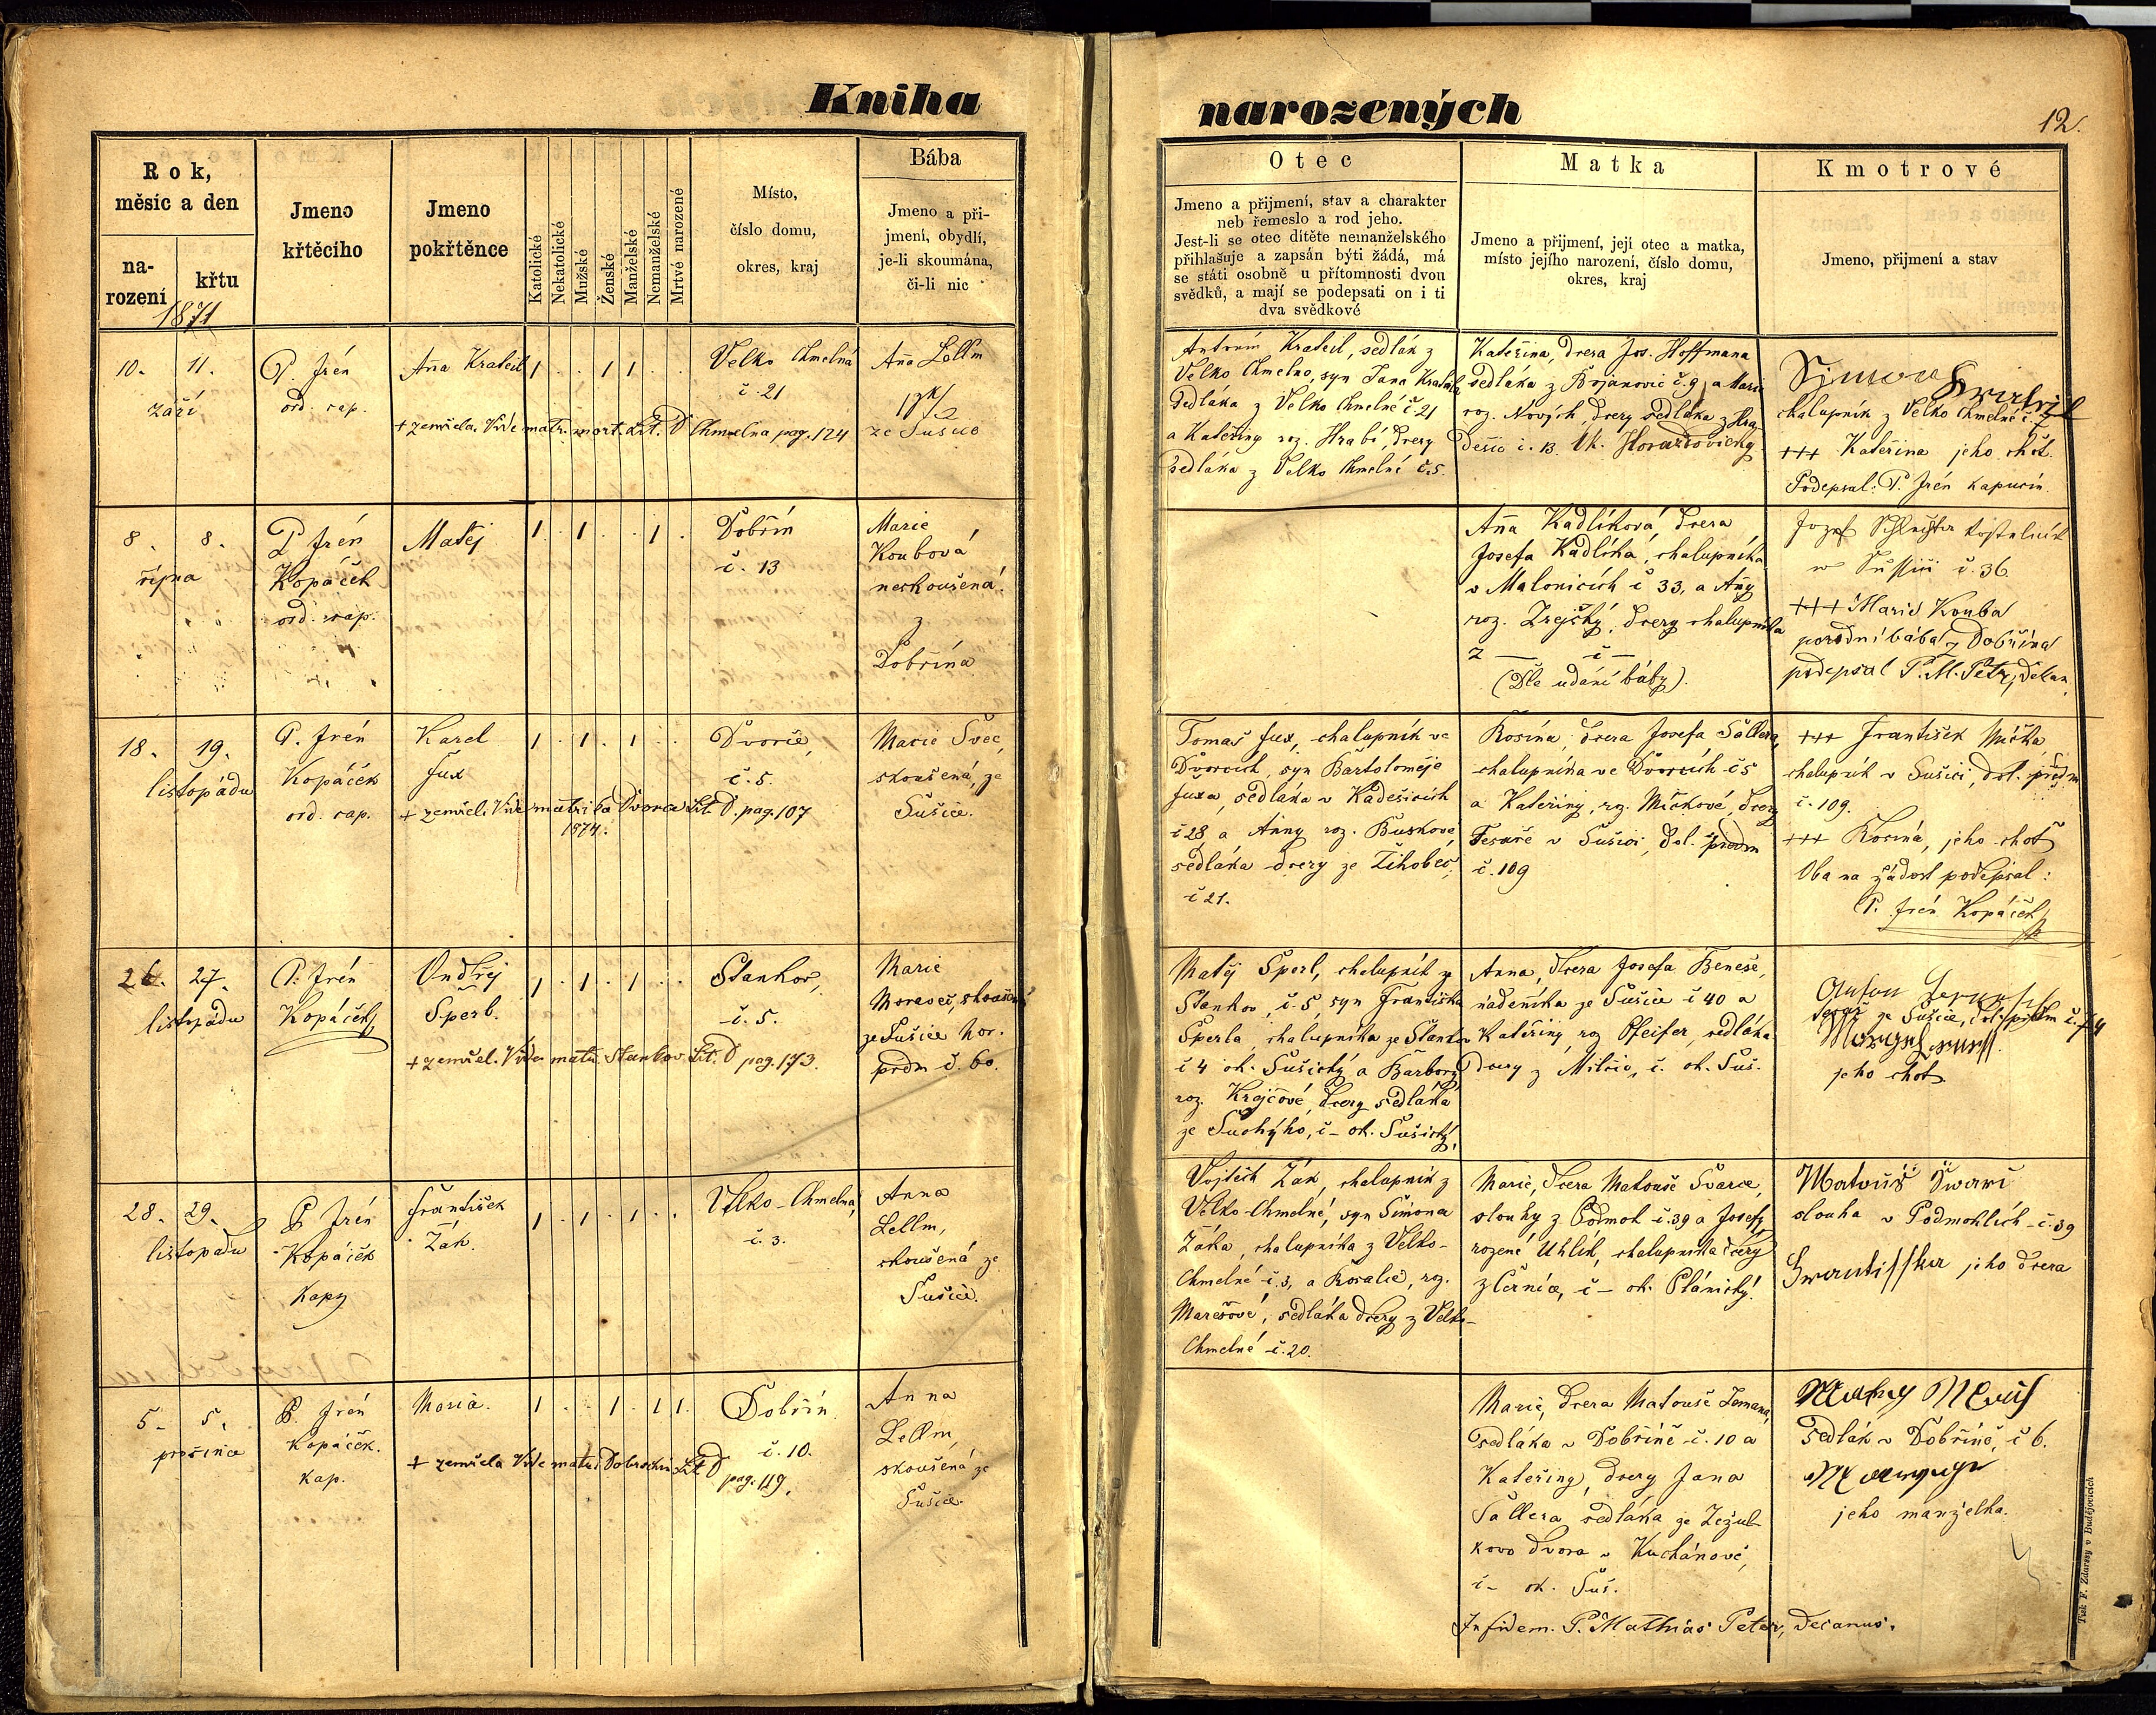 Kniha
narozených
12.
Rok,
měsíc a den
na-
rození
křtu
1871
Jmeno
křtěcího
Jmeno
pokřtěnce
Katolické
Nekatolické
Mužské
Ženské
Manželské
Nemanželské
Mrtvé narozené
Místo,
číslo domu,
okres, kraj
Bába
Jmeno a při-
jmení, obydlí,
je-li skoumána,
či-li nic
Otec
Jmeno a přijmení, stav a charakter
neb řemeslo a rod jeho.
Jest-li se otec dítěte nemanželského
přihlašuje a zapsán býti žádá, má
se státi osobně u přítomnosti dvou
svědků, a mají se podepsati on i ti
dva svědkové
Matka
Jmeno a přijmení, její otec a matka,
místo jejího narození, číslo domu,
okres, kraj
Kmotrové
Jmeno, přijmení a stav
10. 11.
září
P. Irén
ord. cap.
Aña Kratochl
1 . . 1 1 . .
+ zemřela. Vide matr. mort. Lit. D Chmelna pag. 124
Velko Chmelná
č. 21
Aña Lellm
ze Sušice
Antonín, sedlák z
Velko Chmelno, syn Jana
sedláka z Velko Chmelné č 21
a Kateřiny roz. Hrabě, dcery
sedláka z Velko Chmelné č.5.
Kateřina, dcera Jos. Hoffmana
sedláka z Bojanovic č. 9, a Marie
roz. Nových, dcery sedláka z Hra
dešic č. 13. Ok. Horažďovický
chalupník z Velko Chmelné č. 7
+++ Kateřina jeho chot.
Podepsal: P. Irén kapucín.
8. 8.
října
P Irén
Kopáček
ord. cap.
Matěj
1 . 1 . . 1 .
Dobřín
č. 13
Marie
Koubová
neskoušená
z
Dobřína
Aña Kadlíková, dcera
Josefa Kadlíka, chalupníka
v Malonicích č 33, a Añy
roz. Zrejský, dcery chalupníka
z — č —
(Dle udání báby).
Jozef kostelník
w Sussici č. 36.
+++ Marie Kouba
porodní bába z Dobřína
podepsal P. M. Petr, děkan.
18. 19.
listopádu
P. Irén
Kopáček
ord. cap.
Karel
Fux
1 . 1 . 1 . .
+ zemřel. Vide matrika Dvorce Lit. D. pag. 107
1874.
Dvorce,
č. 5.
Marie Švec,
skoušená, ze
Sušice.
Tomaš Fux, chalupník ve
Dvorcích, syn Bartoloměje
Fuxa, sedláka v Kadešicích
č 28, a Anny roz. Buskové
sedláka dcery ze Žihobec,
č 21.
Rosina, dcera Josefa Sallera,
chalupníka ve Dvorcích č 5
a Kateřiny, roz. Mičkové, dcery
Tesaře v Sušici, dol. předm
č. 109
+++ František Mička
chalupník v Sušici, dol. předm.
č. 109.
+++ Rosina, jeho chot
Oba na žádost podepsal:
P. Irén Kopáček
26. 27.
listopádu
P. Irén
Kopáček
Ondřej
Šperl.
1 . 1 . 1 . .
+ zemřel. Vide matri. Stankov. Lit. D pag. 173.
Stankov,
č. 5.
Marie
Moravec, skoušená
ze Sušice hor.
prdm č. 60.
Matěj Šperl, chalupník ze
Stankov, č. 5, syn Františka
Šperla, chalupníka ze Stankov
č 4 ok. Sušický a Barbory
roz. Krejčové, dcery sedláka
ze Suchýho, č – ok. Sušický,
Anna, dcera Josefa Beneše,
nádeníka ze Sušice č 40 a
Kateřiny roz Pfeifer, sedláka
dcery z Milčic, č. ok. Suš.
ze Sušice, dol. předm č. 74
jeho chot.
28. 29.
listopadu
P Irén
Kopáček
kapz
František
Žák.
1 . 1 . 1 . .
Velko-Chmelná,
č. 3.
Anna
Lellm,
skoušená ze
Sušice.
Vojtěch Žák, chalupník z
Velko-Chmelné, syn Šimona
Žáka, chalupníka z Velko-
Chmelné č. 3, a Rosalie, roz.
Marešové, sedláka dcery z Velko-
Chmelné č. 20.
Marie, dcera Matouše Švarce,
slouhy z Podmok č. 39 a Josefy,
rozené Uhlík, chalupníka dcery
z Černíce, č – ok. Plánický.
Matouš Swarc
slouha v Podmoklích č. 39
Frantisska jeho dcera
5. 5.
prosince
P. Irén
Kopáček.
kap.
Maria.
1 . . 1 . 1 1.
+ zemřela Vide matri. Lit D
pag. 119.
Dobřín
č. 10.
Anna
Lellm,
skoušená ze
Sušice.
Marie, dcera Matouše Zemana,
sedláka v Dobříně č. 10 a
Kateřiny, dcery Jana
Sallera, sedláka ze Zežul-
kovo dvora v Kuchánově,
č – ok. Suš.
In fidem. P. Mathias Peter, Decanus.
sedlák v Dobříně, č 6.
jeho manželka.
Tisk F. Zdarssy v Budějovicích